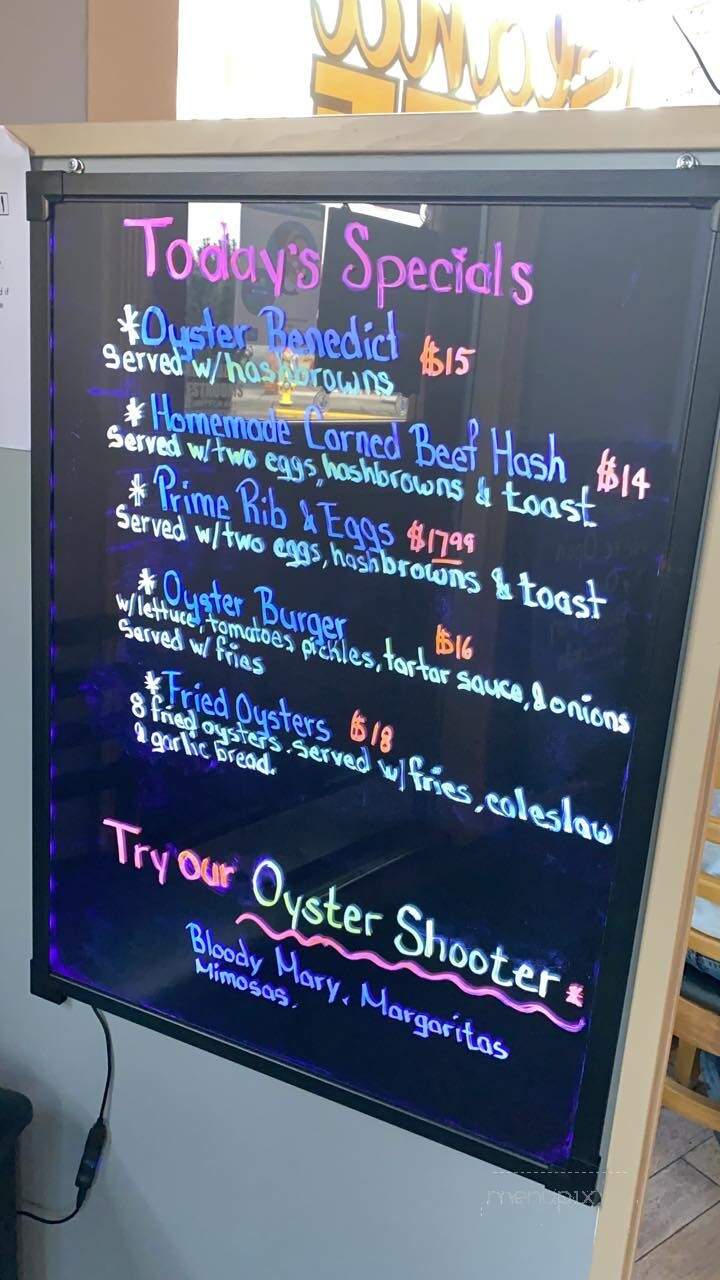 Today's Specials
*Oyster Benedict $15
Served w/hashbrowns
* Homemade Corned Beef Hash $14
Served w/two eggs, hashbrowns & toast
* Prime Rib & Eggs $17⁹⁹
Served w/two eggs, hashbrowns & toast
* Oyster Burger $16
w/lettuce, tomatoes pickles, tartar sauce, & onions
Served w/ fries
*Fried Oysters $18
8 fried oysters. served w/fries, coleslaw
& garlic bread.
Try our Oyster Shooter
Bloody Mary, Margaritas
Mimosas.
menupix